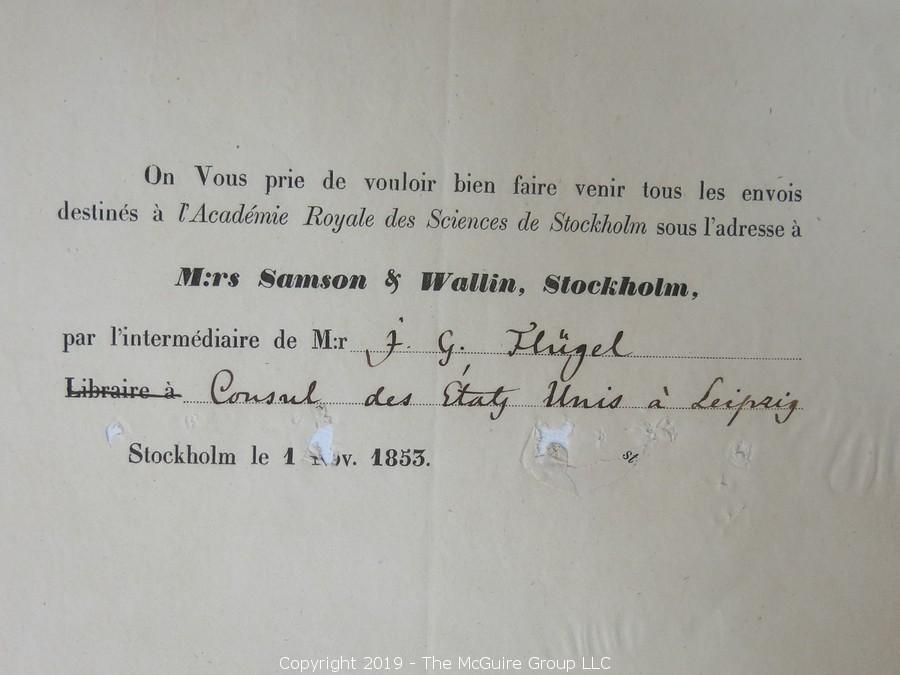 On Vous prie de vouloir bien faire venir tous les envois
destinés à l'Académie Royale des Sciences de Stockholm sous l'adresse à
M:rs Samson & Wallin, Stockholm,
par l'intermédiaire de M:r J. G. Flügel
Libraire à Consul des États Unis à Leipzig
Stockholm le 1 Nov. 1853.
st
Copyright 2019 - The McGuire Group LLC